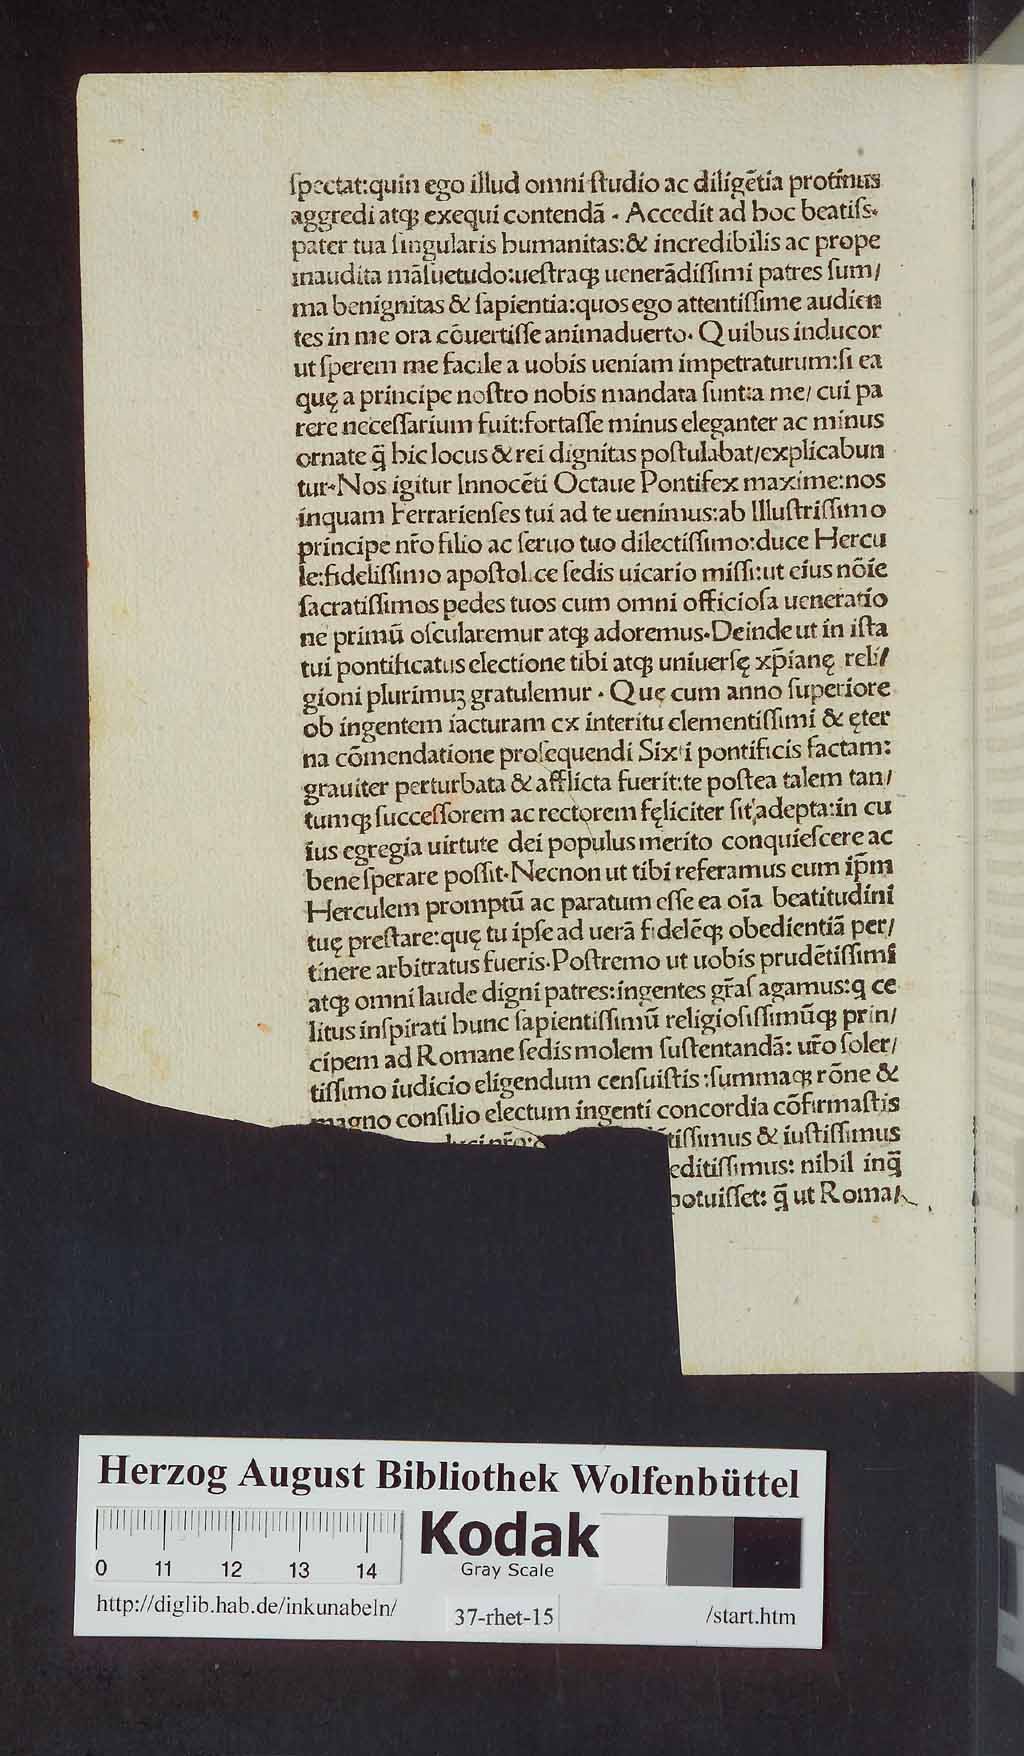 ſpectat:quin ego illud omni ſtudio ac diligētia protinus
aggredi atqꝫ exequi contendā . Accedit ad hoc beatiſs.
pater tua ſingularis humanitas:& incredibilis ac prope
inaudita māſuetudo:ueſtraqꝫ uenerādiſſimi patres ſum/
ma benignitas & ſapientia:quos ego attentiſſime audien
tes in me ora cōuertiſſe animaduerto. Quibus inducor
ut ſperem me facile a uobis ueniam impetraturum:ſi ea
quę a principe noſtro nobis mandata ſunt:a me/ cui pa
rere neceſſarium fuit:fortaſſe minus eleganter ac minus
ornate q̄ hic locus & rei dignitas poſtulabat/explicabun
tur.Nos igitur Innocēti Octaue Pontifex maxime:nos
inquam Ferrarienſes tui ad te uenimus:ab Illuſtriſſimo
principe nr̄o filio ac ſeruo tuo dilectiſſimo:duce Hercu
le:fideliſſimo apoſtolice ſedis uicario miſſi:ut eius nōie
ſacratiſſimos pedes tuos cum omni officioſa ueneratio
ne primū oſcularemur atqꝫ adoremus.Deinde ut in iſta
tui pontificatus electione tibi atqꝫ uniuerſę xp̄ianę reli/
gioni plurimuꝫ gratulemur . Quę cum anno ſuperiore
ob ingentem iacturam ex interitu clementiſſimi & ęter
na cōmendatione proſequendi Sixti pontificis factam:
grauiter perturbata & afflicta fuerit:te poſtea talem tan/
tumqꝫ ſucceſſorem ac rectorem fęliciter ſit adepta:in cu
ius egregia uirtute dei populus merito conquieſcere ac
bene ſperare poſſit.Necnon ut tibi referamus eum ip̄m
Herculem promptū ac paratum eſſe ea oīa beatitudini
tuę preſtare:quę tu ipſe ad uerā fidelēqꝫ obedientiā per/
tinere arbitratus fueris.Poſtremo ut uobis prudētiſſimi
atqꝫ omni laude digni patres:ingentes gr̄aſ agamus:q ce
litus inſpirati hunc ſapientiſſimū religioſiſſimūqꝫ prin/
cipem ad Romane ſedis molem ſuſtentandā: ur̄o ſoler/
tiſſimo iudicio eligendum cenſuiſtis:ſummaqꝫ rōne &
magno conſilio electum ingenti concordia cōfirmaſtis
duci nr̄o: ētiſſimus & iuſtiſſimus
editiſſimus: nihil inq̄
potuiſſet: q̄ ut Roma/
Herzog August Bibliothek Wolfenbüttel
Kodak
Gray Scale
0 11 12 13 14
http://diglib.hab.de/inkunabeln/ 37-rhet-15 /start.htm